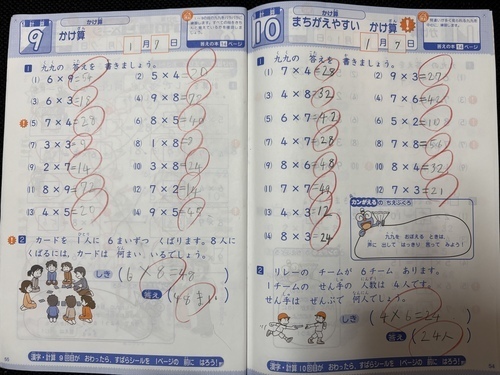 計算
9
かけ算
かけ算
1月7日
答えの本 14ページ
1 九九の 答えを 書きましょう。
(1) 6×9=54
(2) 5×4=20
(3) 6×3=18
(4) 9×8=72
(5) 7×4=28
(6) 8×5=40
(7) 3×3=9
(8) 1×8=8
(9) 2×7=14
(10) 3×8=24
(11) 8×9=72
(12) 7×2=14
(13) 4×5=20
(14) 9×5=45
2 カードを 1人に 6まいずつ くばります。8人に
くばるには、カードは 何まい いるでしょう。
しき (6×8=48)
答え (48まい)
漢字・計算 9回目が おわったら、すばらシールを 1ページの 前に はろう!
計算
10
かけ算
まちがえやすい かけ算 !
1月7日
答えの本 14ページ
1 九九の 答えを 書きましょう。
(1) 7×4=28
(2) 9×3=27
(3) 4×8=32
(4) 7×6=42
(5) 6×7=42
(6) 5×2=10
(7) 4×7=28
(8) 7×8=56
(9) 8×6=48
(10) 8×4=32
(11) 7×7=49
(12) 7×3=21
(13) 4×3=12
(14) 8×3=24
カンがえるの ちえぶくろ
九九を おぼえる ときは、
声に 出して はっきり 言って みよう!
2 リレーの チームが 6チーム あります。
1チームの せん手の 人数は 4人です。
せん手は ぜんぶで 何人でしょう。
しき (4×6=24)
答え (24人)
漢字・計算 10回目が おわったら、すばらシールを 1ページの 前に はろう!